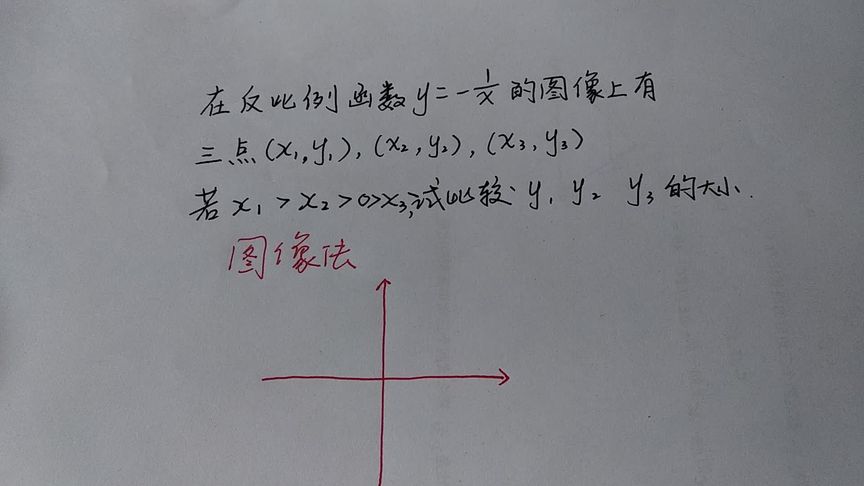 在反比例函数y=-1/x的图像上有
三点(x₁,y₁),(x₂,y₂),(x₃,y₃)
若x₁>x₂>0>x₃,试比较y₁ y₂ y₃的大小.
图像法